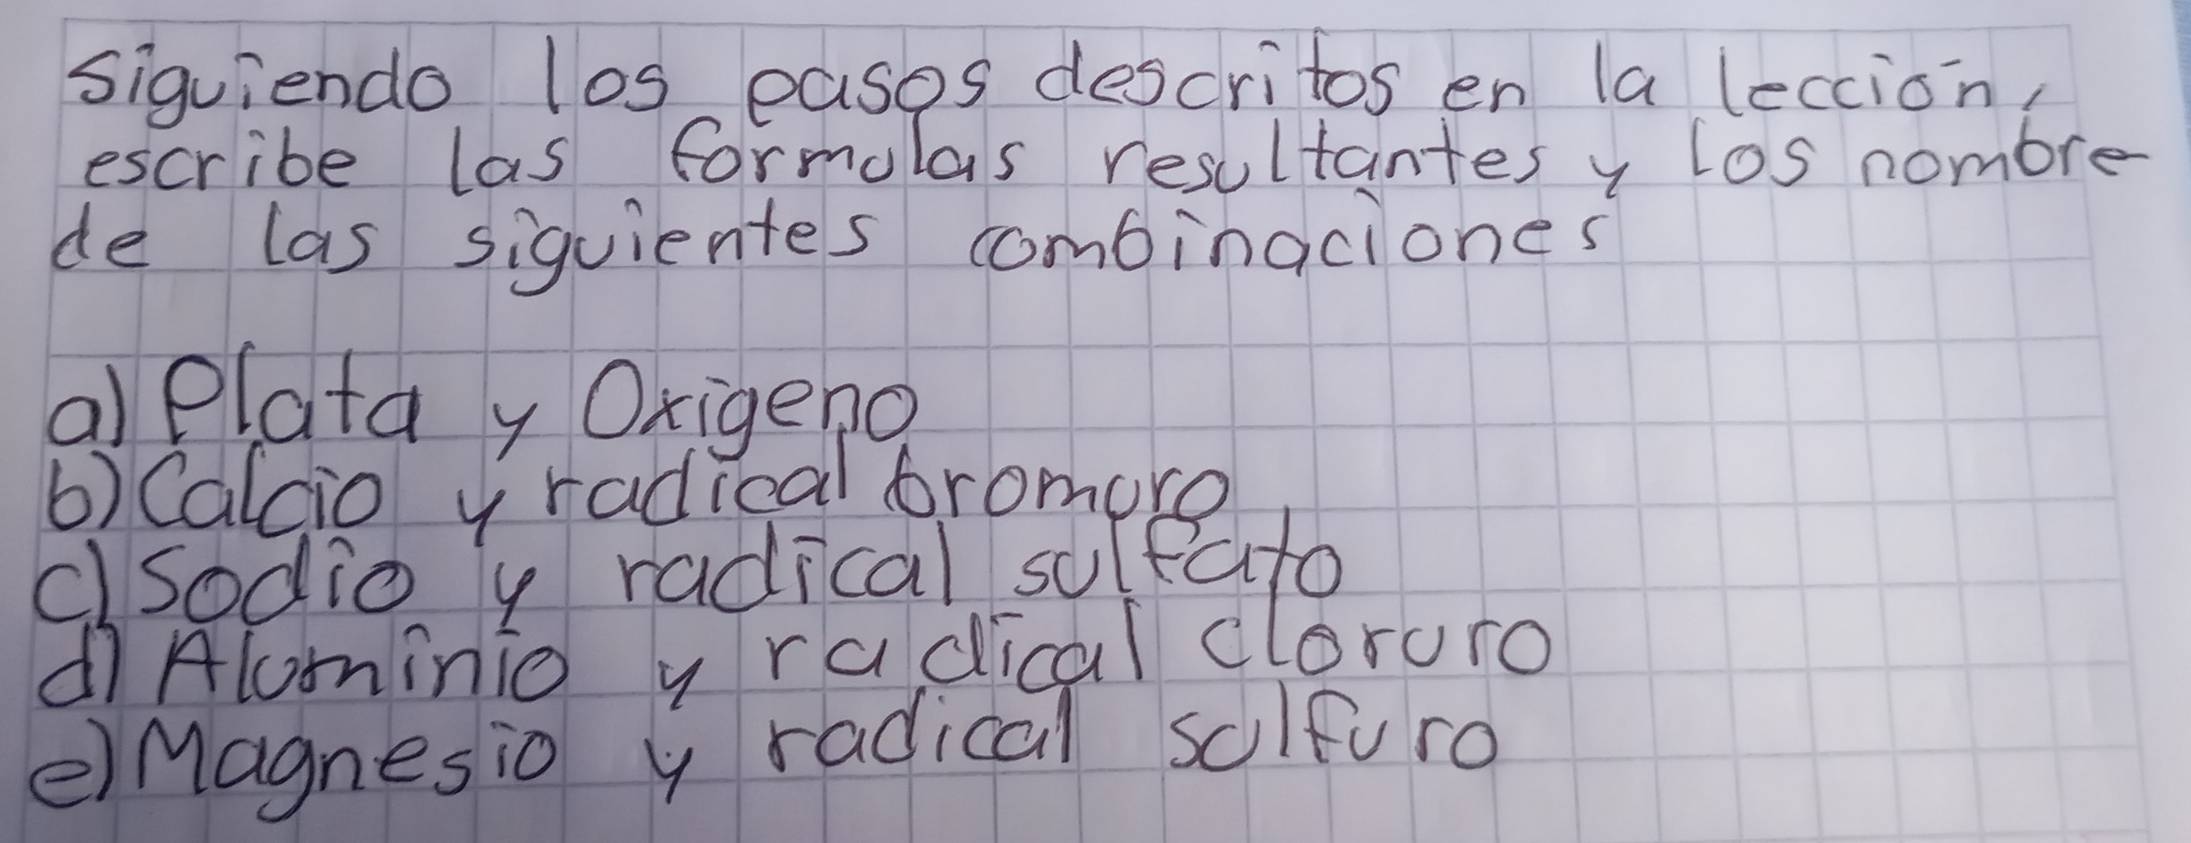 siguiendo los pasos descritos en la lección,
escribe las formulas resultantes y los nombre
de las siguientes combinaciones
a) Plata y Oxigeno
b) Calcio y radical bromuro
c) Sodio y radical sulfato
d) Aluminio y radical cloruro
e) Magnesio y radical sulfuro